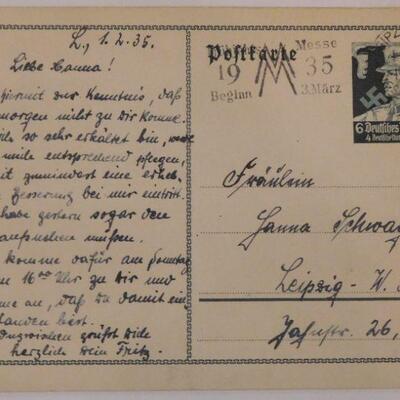 L., 1.2.35.
Liebe Hanna!
hiermit zur Kenntnis, daß
morgen nicht zu dir komme.
ich so sehr erkältet bin,
mich entsprechend pflegen,
mit zumindest eine erheb.
Besserung bei mir eintritt.
habe gestern sogar den
aufsuchen müssen.
komme dafür am Sonntag
16 00 Uhr zu Dir und
me an, daß Du damit ein
standen bist.
Inzwischen grüßt Dich
herzlich Dein Fritz.
Postkarte
Messe
19 35
Beginn 3. März
6 Deutsches
4
Fräulein
Hanna Schwa
Leipzig - W.
Jahnstr. 26,